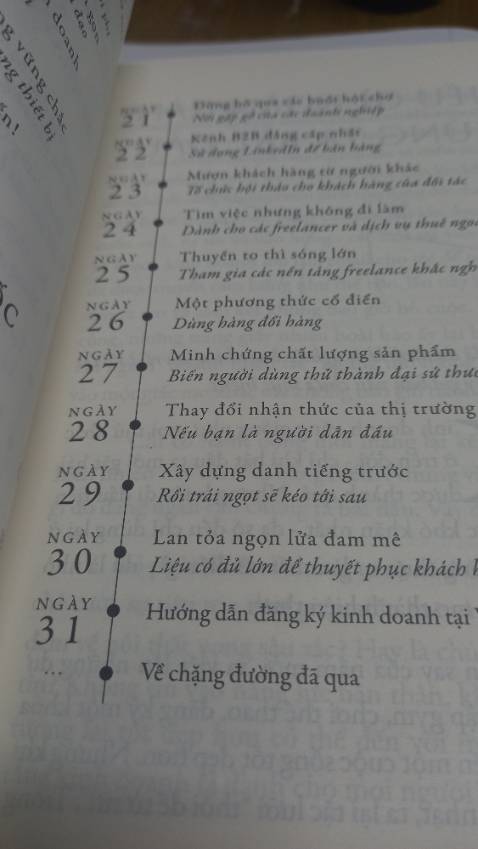 NGÀY
21
Đừng bỏ qua các buổi hội chợ
Nơi gặp gỡ của các doanh nghiệp
NGÀY
22
Kênh B2B đẳng cấp nhất
Sử dụng LinkedIn để bán hàng
NGÀY
23
Mượn khách hàng từ người khác
Tổ chức hội thảo cho khách hàng của đối tác
NGÀY
24
Tìm việc nhưng không đi làm
Dành cho các freelancer và dịch vụ thuê
NGÀY
25
Thuyền to thì sóng lớn
Tham gia các nền tảng freelance khắc
NGÀY
26
Một phương thức cổ điển
Dùng hàng đổi hàng
NGÀY
27
Minh chứng chất lượng sản phẩm
Biến người dùng thử thành đại sứ
NGÀY
28
Thay đổi nhận thức của thị trường
Nếu bạn là người dẫn đầu
NGÀY
29
Xây dựng danh tiếng trước
Rồi trái ngọt sẽ kéo tới sau
NGÀY
30
Lan tỏa ngọn lửa đam mê
Liệu có đủ lớn để thuyết phục khách
NGÀY
31
Hướng dẫn đăng ký kinh doanh tại
...
Về chặng đường đã qua
doanh
vững chắc
thiết bị